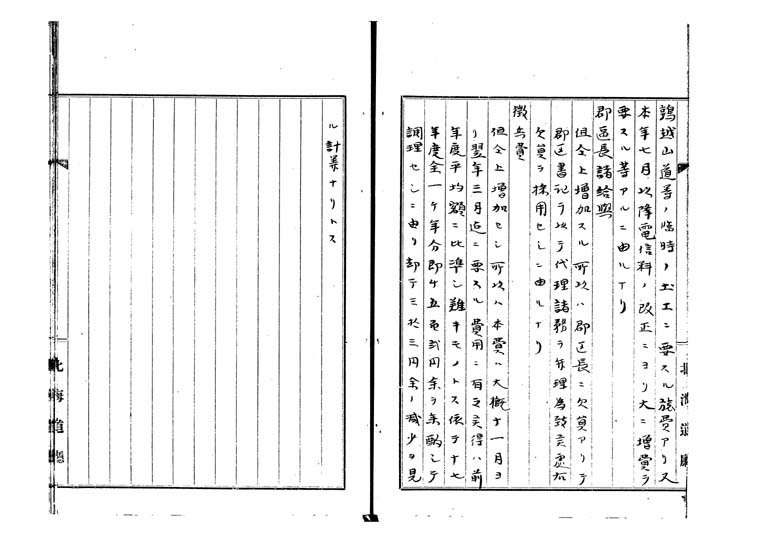 鶉越山道等ノ臨時ノ土工ニ要スル旅費アリ又
本年七月以降電信料ノ改正ニヨリ大ニ増費ヲ
要スル等アルニ由ルナリ
郡区長諸給與
但仝上増加スル所以ハ郡区長ニ欠員アリテ
郡区書記ヲ以テ代理諸務ヲ弁理為致候処右
欠員ヲ採用セシニ由ルナリ
徴兵費
但仝上増加セシ所以ハ本費ハ大概十一月ヨ
リ翌年三月迄ニ要スル費用ニ有之候得ハ前
年度平均額ニ比準シ難キモノトス依テ十七
年度全一ケ年分即千五百弐円余ヲ参酌シテ
調理セシニ由リ却テ三拾三円余ノ減少ヲ見
ル計算ナリトス
北海道廳
北海道廳